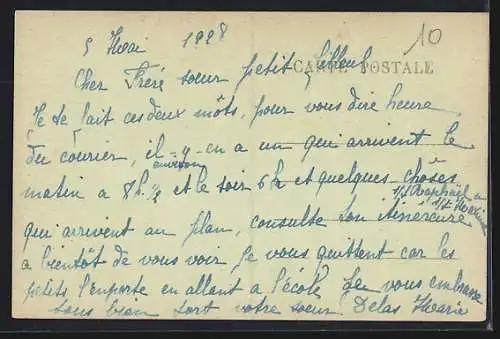 5 Mai 1928
10
CARTE POSTALE
Cher Frère soeur petit filleul
Je te fait ces deux môts, pour vous dire heure
du courrier, il-y-en a un qui arrivent le
environ
matin a 8h ½ et le soir 6h et quelques chôses
St Raphaël a
St
qui arrivent au plan, consulte ton itinercure
a bientôt de vous voir je vous quittent car les
petits l'emporte en allant a l'école Je vous embrasse
tous bien fort votre soeur Delas Maria